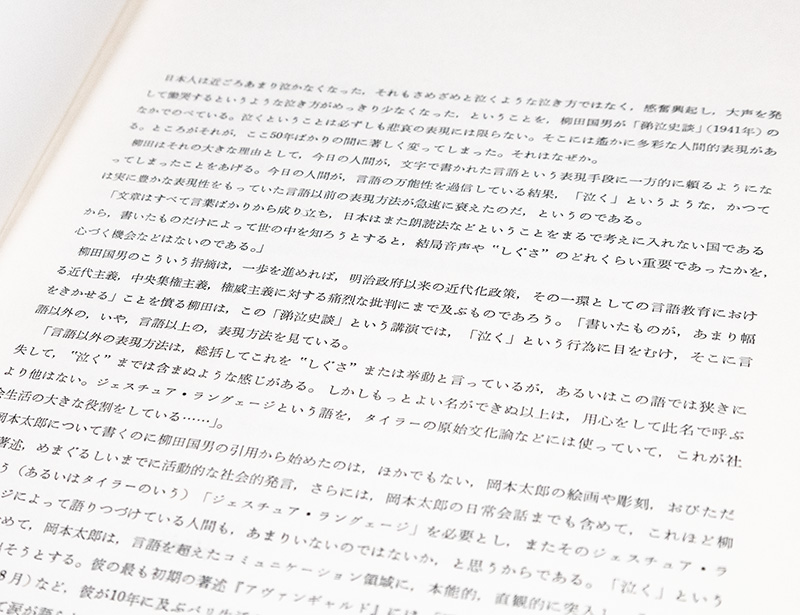 日本人は近ごろあまり泣かなくなった，それもさめざめと泣くような泣き方ではなく，感奮興起し，大声を発
して慟哭するというような泣き方がめっきり少なくなった，ということを，柳田国男が「涕泣史談」(1941年)の
なかでのべている。泣くということは必ずしも悲哀の表現には限らない。そこには遙かに多彩な人間的表現があ
る。ところがそれが，ここ50年ばかりの間に著しく変ってしまった。それはなぜか。
柳田はそれの大きな理由として，今日の人間が，文字で書かれた言語という表現手段に一方的に頼るようにな
ってしまったことをあげる。今日の人間が，言語の万能性を過信している結果，「泣く」というような，かつて
は実に豊かな表現性をもっていた言語以前の表現方法が急速に衰えたのだ，というのである。
「文章はすべて言葉ばかりから成り立ち，日本はまた朗読法などということをまるで考えに入れない国である
から，書いたものだけによって世の中を知ろうとすると，結局音声や“しぐさ”のどれくらい重要であったかを，
心づく機会などはないのである。」
柳田国男のこういう指摘は，一歩を進めれば，明治政府以来の近代化政策，その一環としての言語教育におけ
る近代主義，中央集権主義，権威主義に対する痛烈な批判にまで及ぶものであろう。「書いたものが，あまり幅
をきかせる」ことを憤る柳田は，この「涕泣史談」という講演では，「泣く」という行為に目をむけ，そこに言
語以外の，いや，言語以上の，表現方法を見ている。
「言語以外の表現方法は，総括してこれを“しぐさ”または挙動と言っているが，あるいはこの語では狭きに
失して，“泣く”までは含まぬような感じがある。しかしもっとよい名ができぬ以上は，用心をして此名で呼ぶ
より他はない。ジェスチュア・ランゲージという語を，タイラーの原始文化論などには使っていて，これが社
会生活の大きな役割をしている……」。
岡本太郎について書くのに柳田国男の引用から始めたのは，ほかでもない，岡本太郎の絵画や彫刻，おびただ
著述，めまぐるしいまでに活動的な社会的発言，さらには，岡本太郎の日常会話までも含めて，これほど柳
う（あるいはタイラーのいう）「ジェスチュア・ランゲージ」を必要とし，またそのジェスチュア・ラ
ージによって語りつづけている人間も，あまりいないのではないか，と思うからである。「泣く」という
めて，岡本太郎は，言語を超えたコミュニケーション領域に，本能的，直観的に突入し
そうとする。彼の最も初期の著述『アヴァンギャルド』には
8月）など，彼が10年に及ぶパリ生活